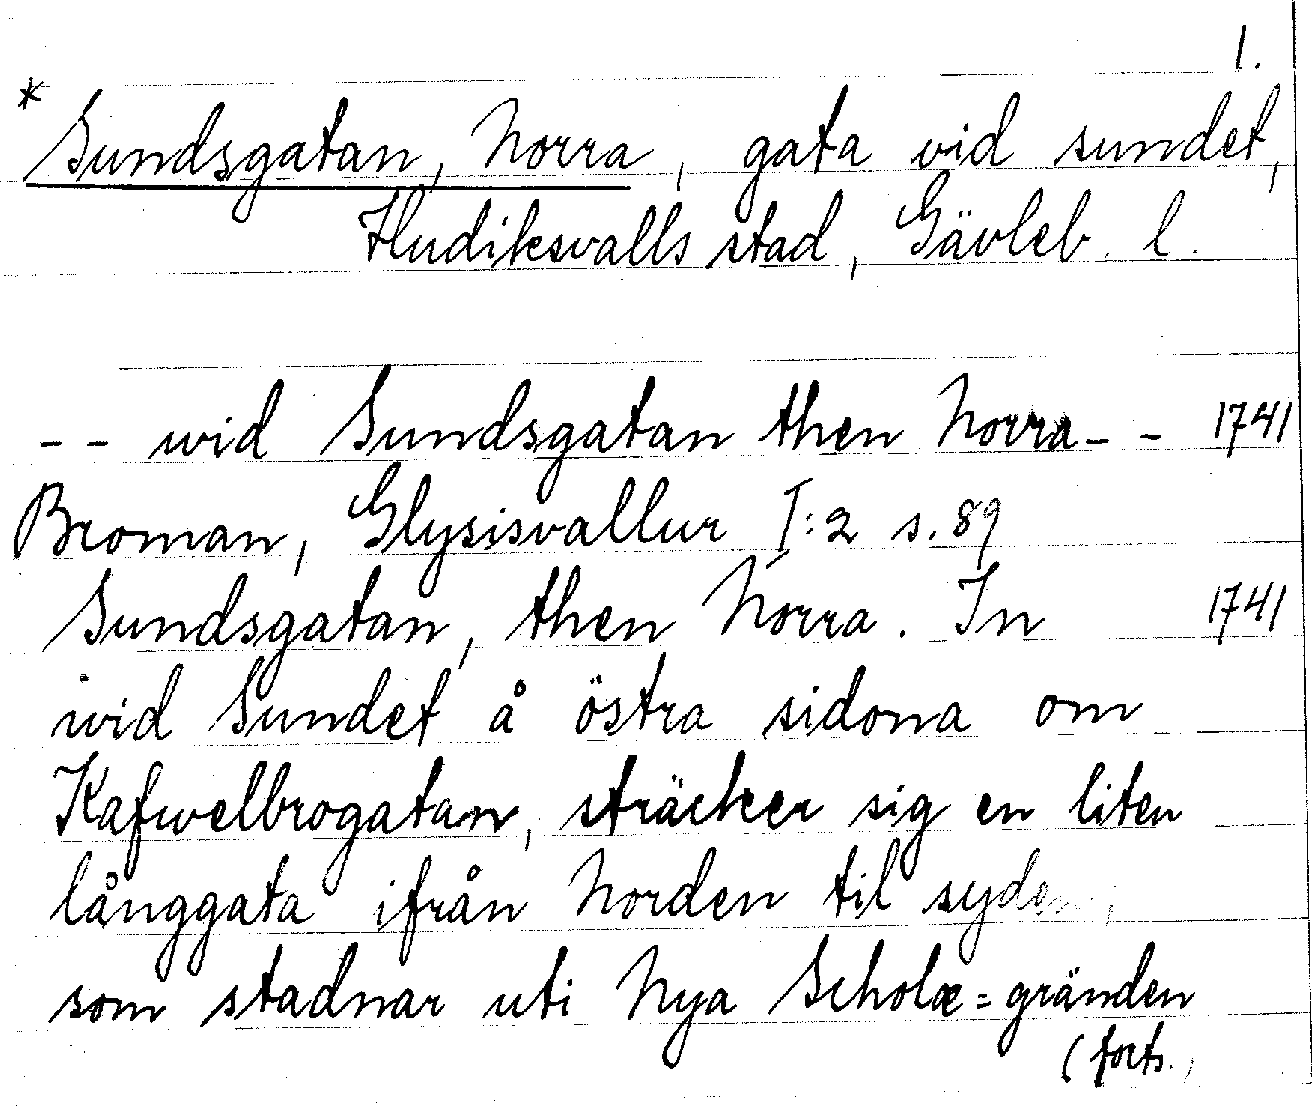 1.
* Sundsgatan, Norra, gata vid sundet,
Hudiksvalls stad, Gävleb. l.
-- wid Sundsgatan then Norra -- 1741
Broman, Glysisvallur I:2 s. 89
Sundsgatan, then Norra. In 1741
wid Sundet å östra sidona om
Kafwelbrogatan, sträcker sig en liten
långgata ifrån Norden til syden,
som stadnar uti Nya Scholæ=gränden
(forts.)